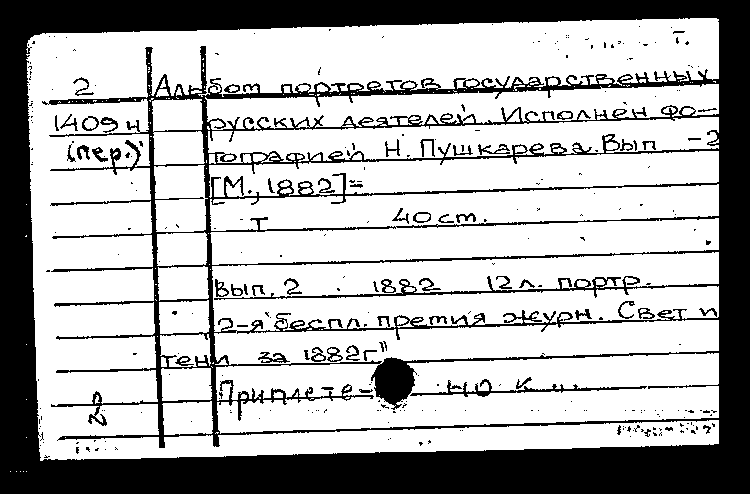 Т.
2 Альбом портретов государственных
1409 н русских деятелей. Исполнен фо-
(пер.) тографией Н. Пушкарева. Вып – 2
[М., 1882]=
Т 40 ст.
Вып. 2 . 1882 12 л. портр.
"2-я беспл. премия журн. Свет и
тени за 1882г."
Приплете- но к